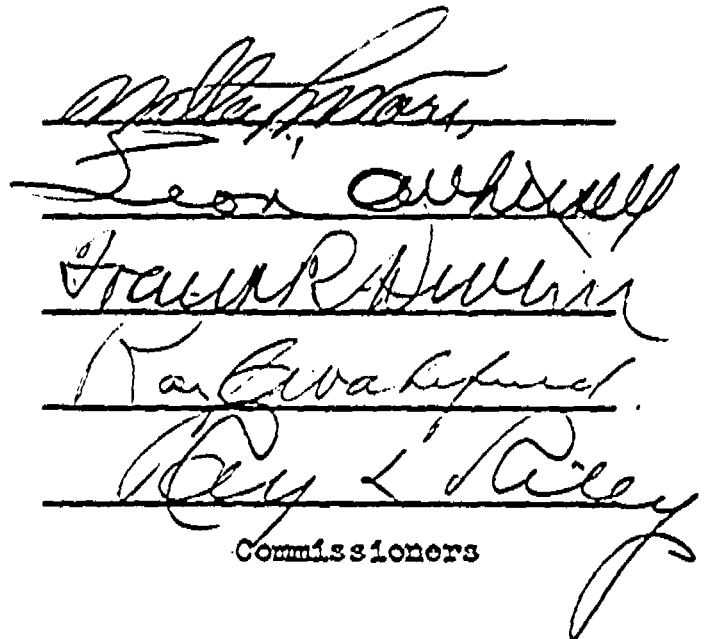 Leon Whitsell
Frank R Devlin
Ray C Wakefield
Ray L Riley
Commissioners